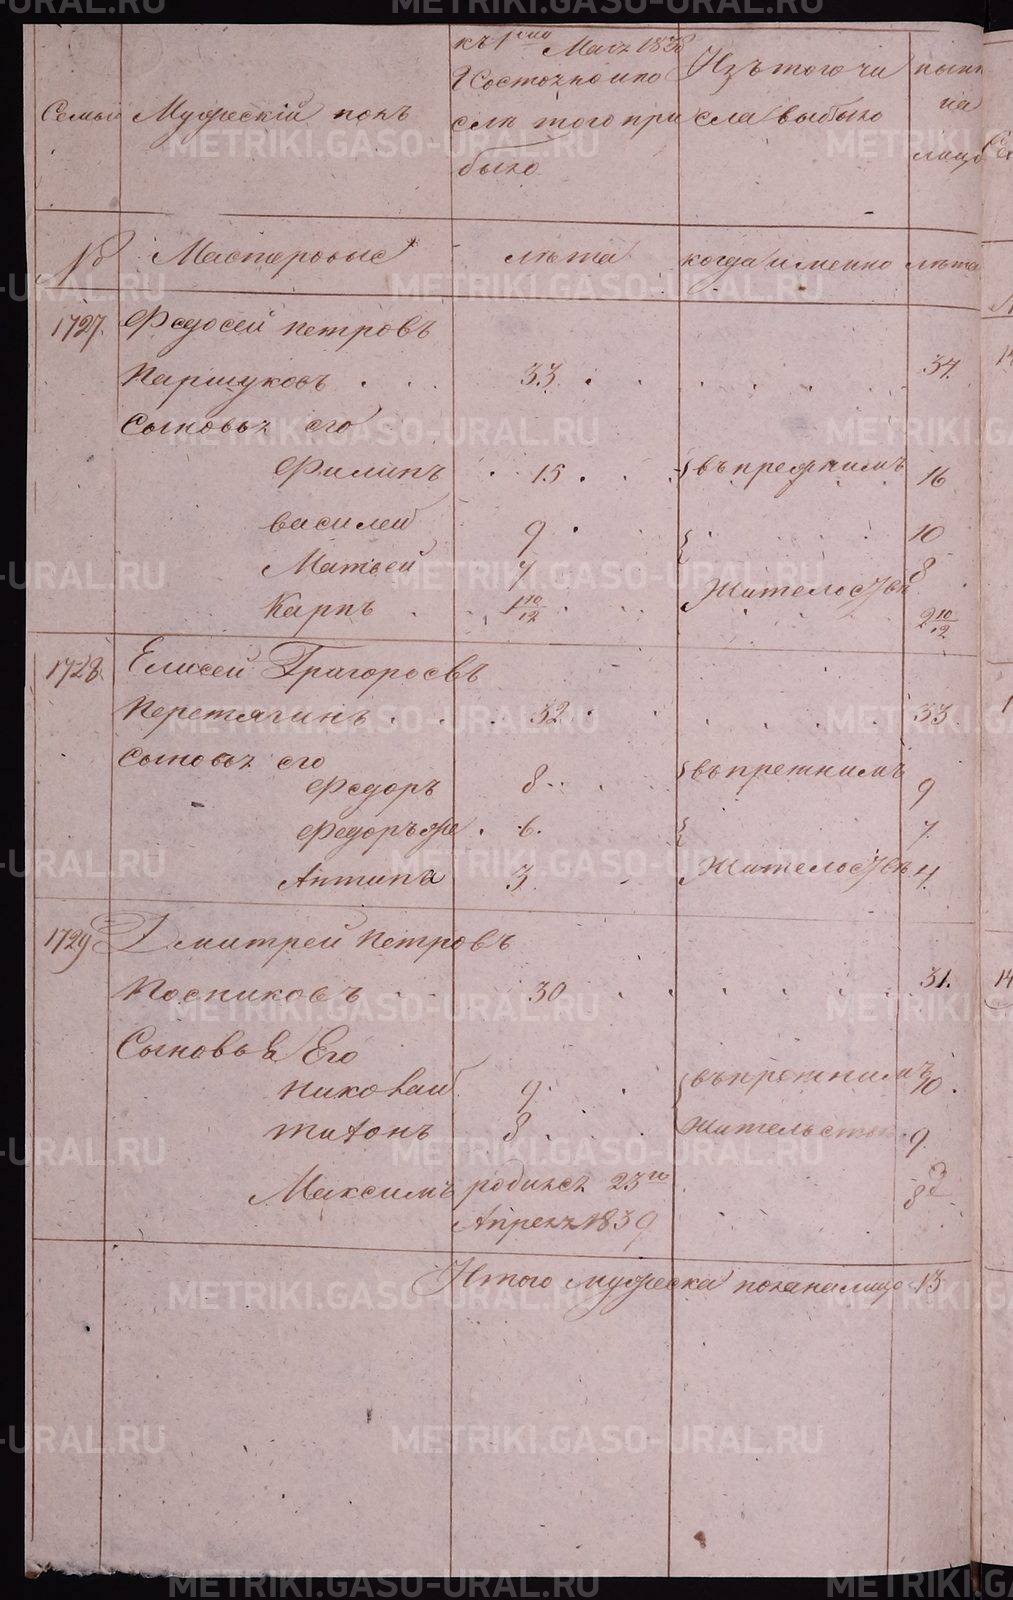 Семьи Мужескій полъ
къ 1му Мая 1838
Состояло и по
слѣ того при
было
Изъ того чи
сла выбыло
ныне
на
лицо
№ Мастеровые лѣта когда именно лѣта
1727. Федосей Петровъ
Паршуковъ . . . 33 . . . . . . 34.
Сыновья его
Филипъ . 15 . . . въ прежнимъ 16
Василей 9 . 10
Матвей 7 8
Жителоствѣ
Карпъ . 1 10/12 . 2 10/12
1728. Елисей Григорьевъ
Перетягинъ . . . . 32 . . . . . . 33
Сыновья его
въ прежнимъ
Федоръ 8 . . . 9
Федоръ же . 6. 7.
Антипа 3 Жителоствѣ 4.
1729 Дмитрей Петровъ
Посниковъ . . 30 . . . . . . 31.
Сыновья Его
Николаи 9 . . въ прежнимъ 10.
Титонъ 8 . . . . Жительстве . 9
Максимъ родился 23го
Апреля 1839
Итого мужеска пола на лицо 13
METRIKI.GASO-URAL.RU